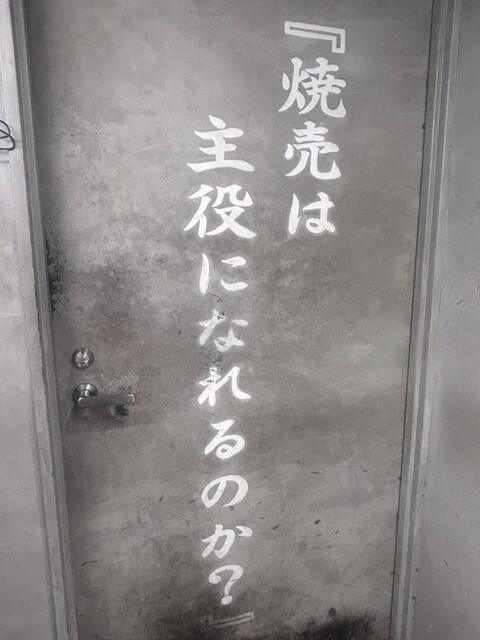 『焼売は
主役になれるのか？』